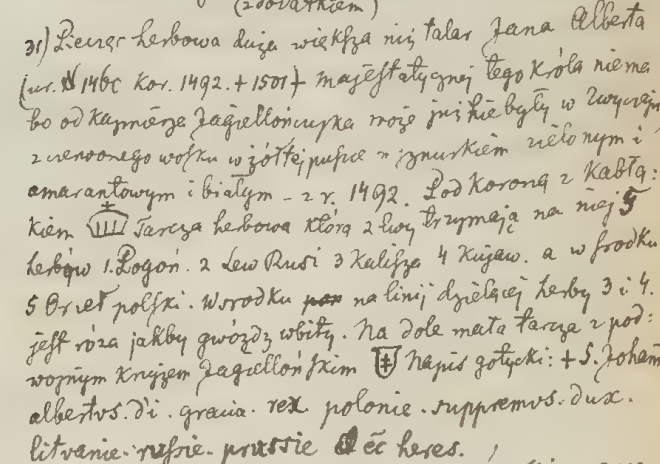 (z dodatkiem)
31) Pieczęc herbowa duża większa niż talar Jana Alberta
(ur. 146c Kor. 1492. + 1501) majestatycznej tego Króla niema
bo od Kazmiérza Jagiellończyka może już nie były w zwyczaju
z czerwonego wosku w żółtej puszce n sznurkiem zielonym i
amarantowym i białym – z r. 1492. Pod Koroną z Kabłą:
kiem Tarcza herbowa którą 2 lwy trzymają na niej 5
herbów 1. Pogoń. 2 Lew Rusi 3 Kalisza 4 Kujaw. a w środku
5 Orzeł polski. Wsrodku na linij dzielącej herby 3 i 4.
jest róza jakby gwóżdz wbity. Na dole mała tarcza z pod:
wojnym Krzyżem Jagiellońskim Napis gotycki: + S. Johann
albertvs. d'i. gracia. rex polonie. suppremvs. dux.
litvanie. russie. prussie ēc heres.